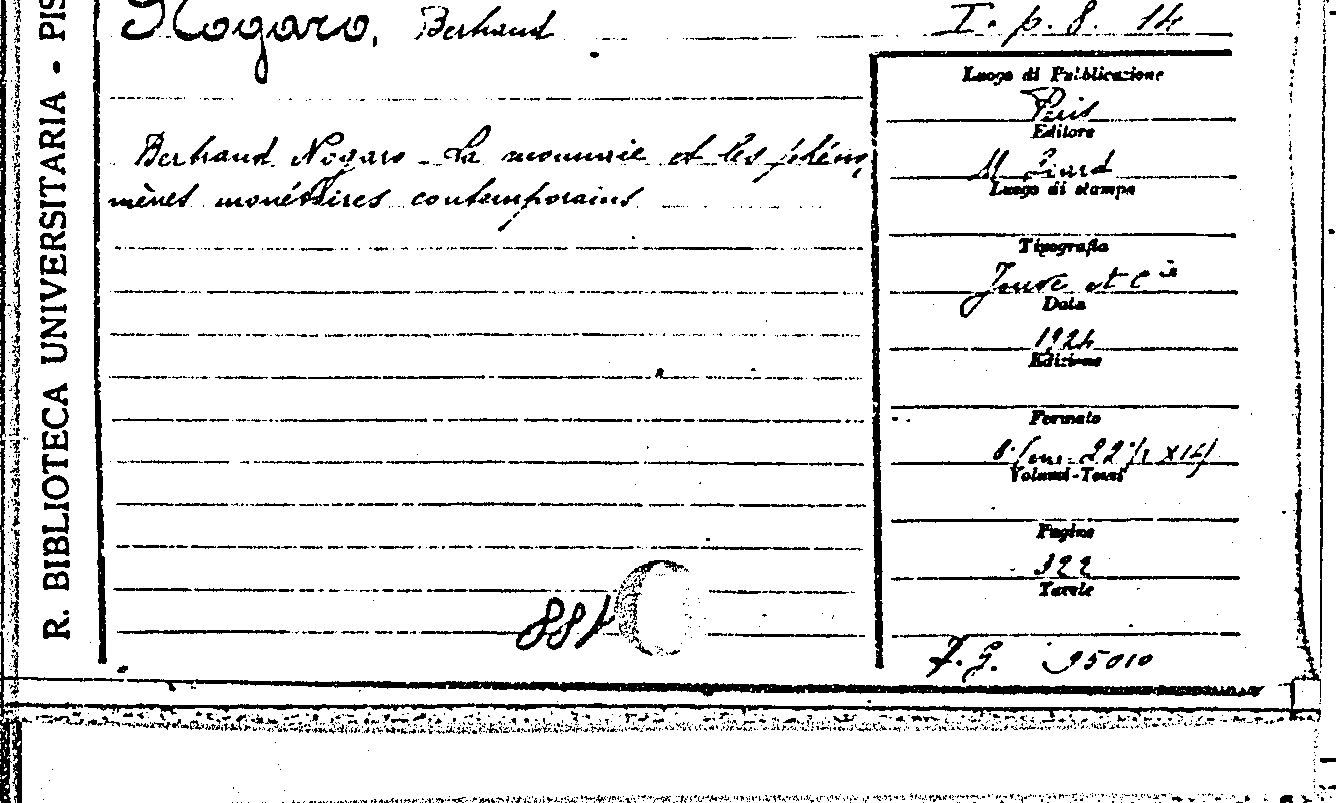 R. BIBLIOTECA UNIVERSITARIA - PIS
Nogaro, Bertrand
I. p. 8. 14
Bertrand Nogaro - La monnaie et les phéno,
mènes monétaires contemporains
Luogo di Pubblicazione
Paris
Editore
M. Giard
Luogo di stampa
Tipografia
Jouve et Cie
Data
1924
Edizione
Formato
8° (cm. 22½ x 14)
Volumi-Tomi
Pagine
Tavole
95010